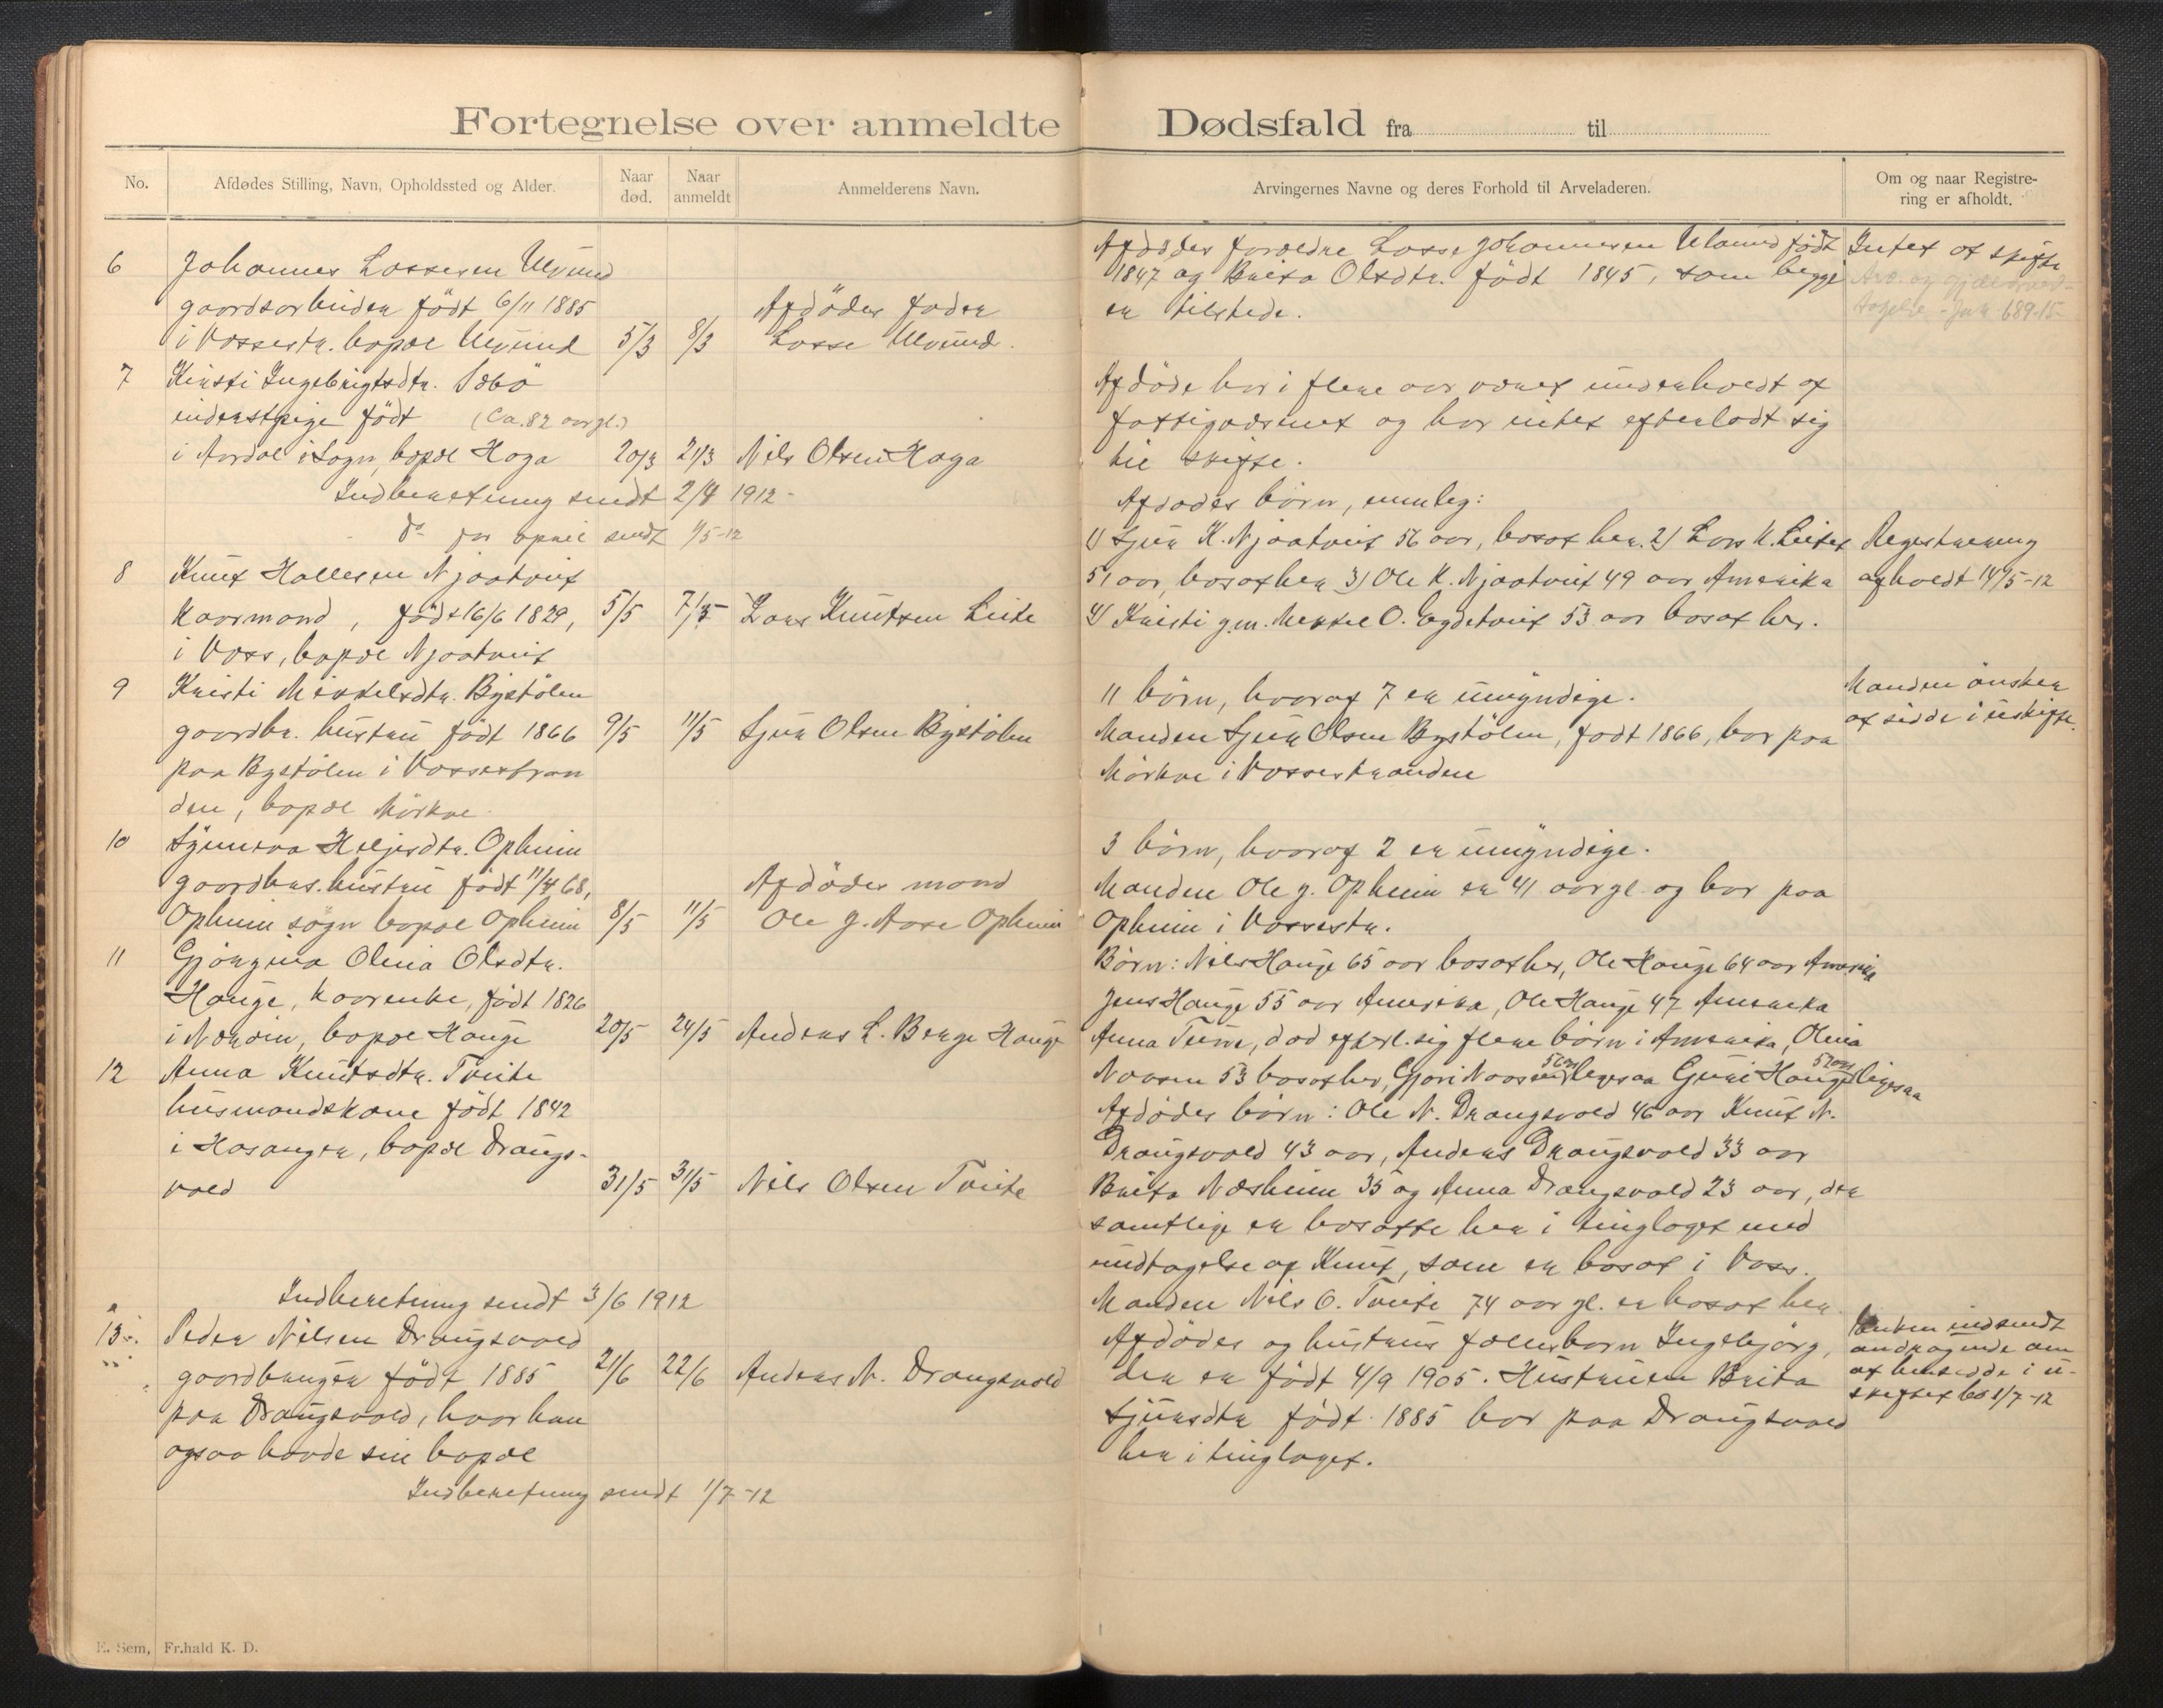 Fortegnelse over anmeldte Dødsfald fra til
No.
Afdødes Stilling, Navn, Opholdssted og Alder.
Naar død.
Naar anmeldt
Anmelderens Navn.
Arvingernes Navne og deres Forhold til Arveladeren.
Om og naar Registre-
ring er afholdt.
6 Johannes Lassesen Ulvund
gaardsarbeider født 6/11 1885
i Vossestr. bopæl Ulvund 5/3 8/3
Afdødes fader
Lasse Ulvund.
Afdødes forældre Lasse Johannesen Ulvund født
1847 og Brita Olsdtr. født 1845, som begge
er tilstede.
Intet at skifte
Arv. og gjældsved-
tagelse - Jnr 689-15
7 Kristi Ingebrigtsdtr. Sæbø
inderstpige født (Ca. 82 aar gl.)
i Aardal i Sogn, bopæl Haga 20/3 21/3 Nils Olsen Haga
Afdøde har i flere aar været underholdt af
fattigvæsenet og har intet efterladt sig
til skifte.
Indberetning sendt 2/4 1912 -
do for april sendt 1/5-12
8 Knut Hallesen Njaatveit
kaarmand, født 16/6 1829, 5/5 7/5 Lars Knutsen Leite
i Voss, bopæl Njaatveit
Afdødes børn, nemlig:
1) Sjur K. Njaatveit 56 aar, bosat her. 2) Lars K. Leitet
51 aar, bosat her 3) Ole K. Njaatveit 49 aar Amerika
4) Kristi g.m. Mekkel O. Egdetveit 53 aar bosat her.
Registrering
afholdt 14/5-12
9 Kristi Mikkelsdtr. Bystølen
gaardbr. hustru født 1866 9/5 11/5 Sjur Olsen Bystølen
paa Bystølen i Vossestran
den, bopæl Mörkve
11 børn, hvoraf 7 er umyndige.
Manden Sjur Olsen Bystølen, født 1866, bor paa
Mörkve i Vossestranden
Manden ønsker
at sidde i uskifte.
10 Synneva Heljesdtr. Opheim
gaardbrs. hustru født 11/4 68,
Opheim sogn bopæl Opheim 8/5 11/5
Afdødes mand
Ole G. Aase Opheim
3 børn, hvoraf 2 er umyndige.
Manden Ole G. Opheim er 41 aar gl. og bor paa
Opheim i Vossestr.
11 Gjørgina Olina Olsdtr.
Hauge, kaarenke, født 1826
i Nærøin, bopæl Hauge 20/5 24/5 Anders L. Berge Hauge
Børn: Nils Hauge 65 aar bosat her, Ole Hauge 64 aar Amerika
Jens Hauge 55 aar Amerika, Ole Hauge 47 Amerika
Anna Tenne, død efterl. sig flere børn i Amerika, Olina
Naasen 53 bosat her, Gjøri Naasen 56 aar ligesaa Guri Hauge 57 aar ligesaa
12 Anna Knutsdtr. Tveite
husmandskone født 1842
i Hosanger, bopæl Draugs-
vold 31/5 31/5 Nils Olsen Tveite
Afdødes børn: Ole N. Draugsvold 46 aar Knut N.
Draugsvold 43 aar, Anders Draugsvold 33 aar
Brita Næsheim 35 og Anna Draugsvold 23 aar, der
samtlige er bosatte her i tinglaget med
undtagelse af Knut, som er bosat i Voss.
Manden Nils O. Tveite 74 aar gl. er bosat her.
Indberetning sendt 3/6 1912
13 Peder Nilsen Draugsvold
gaardbruger født 1885 21/6 22/6 Anders N. Draugsvold
paa Draugsvold, hvor han
ogsaa havde sin bopæl
Afdødes og hustrus fællesbarn Ingebjørg,
der er født 4/9 1905. Hustruen Brita
Sjursdtr født 1885 bor paa Draugsvold
her i tinglaget.
Enken indsendt
andragende om
at hensidde i u-
skiftet bo 1/7-12
Indberetning sendt 1/7-12
E. Sem, Fr.hald K. D.